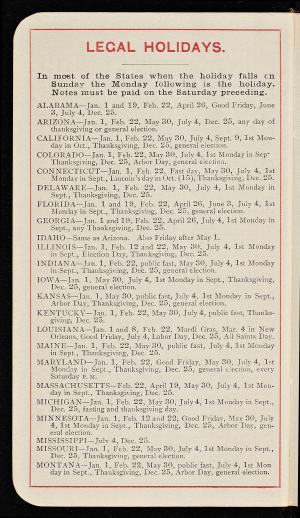 LEGAL HOLIDAYS.
In most of the States when the holiday falls on
Sunday the Monday following is the holiday.
Notes must be paid on the Saturday preceding.
ALABAMA—Jan. 1 and 19, Feb. 22, April 26, Good Friday, June
3, July 4, Dec. 25.
ARIZONA—Jan. 1, Feb. 22, May 30, July 4, Dec. 25, any day of
thanksgiving or general election.
CALIFORNIA—Jan. 1, Feb. 22, May 30, July 4, Sept. 9, 1st Mon-
day in Oct., Thanksgiving, Dec. 25, general election.
COLORADO—Jan. 1, Feb. 22, May 30, July 4, 1st Monday in Sep
Thanksgiving, Dec. 25, Arbor Day, general election.
CONNECTICUT—Jan. 1, Feb. 22, Fast day, May 30, July 4, 1st
Monday in Sept., Lincoln's day in Oct. (15), Thanksgiving, Dec. 25.
DELAWARE—Jan. 1, Feb. 22, May 30, July 4, 1st Monday in
Sept., Thanksgiving, Dec. 25.
FLORIDA—Jan. 1 and 19, Feb. 22, April 26, June 3, July 4, 1st
Monday in Sept., Thanksgiving, Dec. 25, general election.
GEORGIA—Jan. 1 and 19, Feb. 22, April 26, July 4, 1st Monday in
Sept., any Thanksgiving, Dec. 25.
IDAHO—Same as Arizona. Also Friday after May 1.
ILLINOIS—Jan. 1, Feb. 12 and 22, May 30, July 4, 1st Monday
in Sept., Election Day, Thanksgiving, Dec. 25.
INDIANA—Jan. 1, Feb. 22, public fast, May 30, July 4, 1st Monday
in Sept., Thanksgiving, Dec. 25, general election.
IOWA—Jan. 1, May 30, July 4, 1st Monday in Sept., Thanksgiving,
Dec. 25, general election.
KANSAS—Jan. 1, May 30, public fast, July 4, 1st Monday in Sept.,
Arbor Day, Thanksgiving, Dec. 25, general election.
KENTUCKY—Jan. 1, Feb. 22, May 30, July 4, public fast, Thanks-
giving, Dec. 25.
LOUISIANA—Jan. 1 and 8, Feb. 22, Mardi Gras, Mar. 4 in New
Orleans, Good Friday, July 4, Labor Day, Dec. 25, All Saints Day.
MAINE—Jan. 1, Feb. 22, May 30, public fast, July 4, 1st Monday
in Sept., Thanksgiving, Dec. 25.
MARYLAND—Jan. 1, Feb. 22, Good Friday, May 30, July 4, 1st
Monday in Sept., Thanksgiving, Dec. 25, general election, every
Saturday P. M.
MASSACHUSETTS—Feb. 22, April 19, May 30, July 4, 1st Mon-
day in Sept., Thanksgiving, Dec. 25.
MICHIGAN—Jan. 1, Feb. 22, May 30, July 4, 1st Monday in Sept.,
Dec. 25, fasting and thanksgiving day.
MINNESOTA—Jan. 1, Feb. 12 and 22, Good Friday, May 30, July
4, 1st Monday in Sept., Thanksgiving, Dec. 25, Arbor Day, gen-
eral election.
MISSISSIPPI—July 4, Dec. 25.
MISSOURI—Jan. 1, Feb. 22, May 30, July 4, 1st Monday in Sept.,
Dec. 25, Thanksgiving, general election.
MONTANA—Jan. 1, Feb. 22, May 30, public fast, July 4, 1st Mon
day in Sept., Thanksgiving, Dec. 25, Arbor Day, general election.